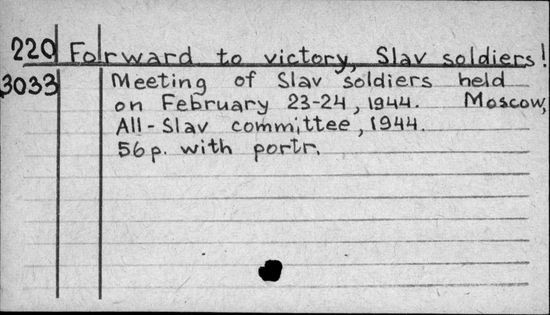 220 Forward to victory, Slav soldiers!
3033 Meeting of Slav soldiers held
on February 23-24, 1944. Moscow,
All-Slav committee, 1944.
56 p. with portr.